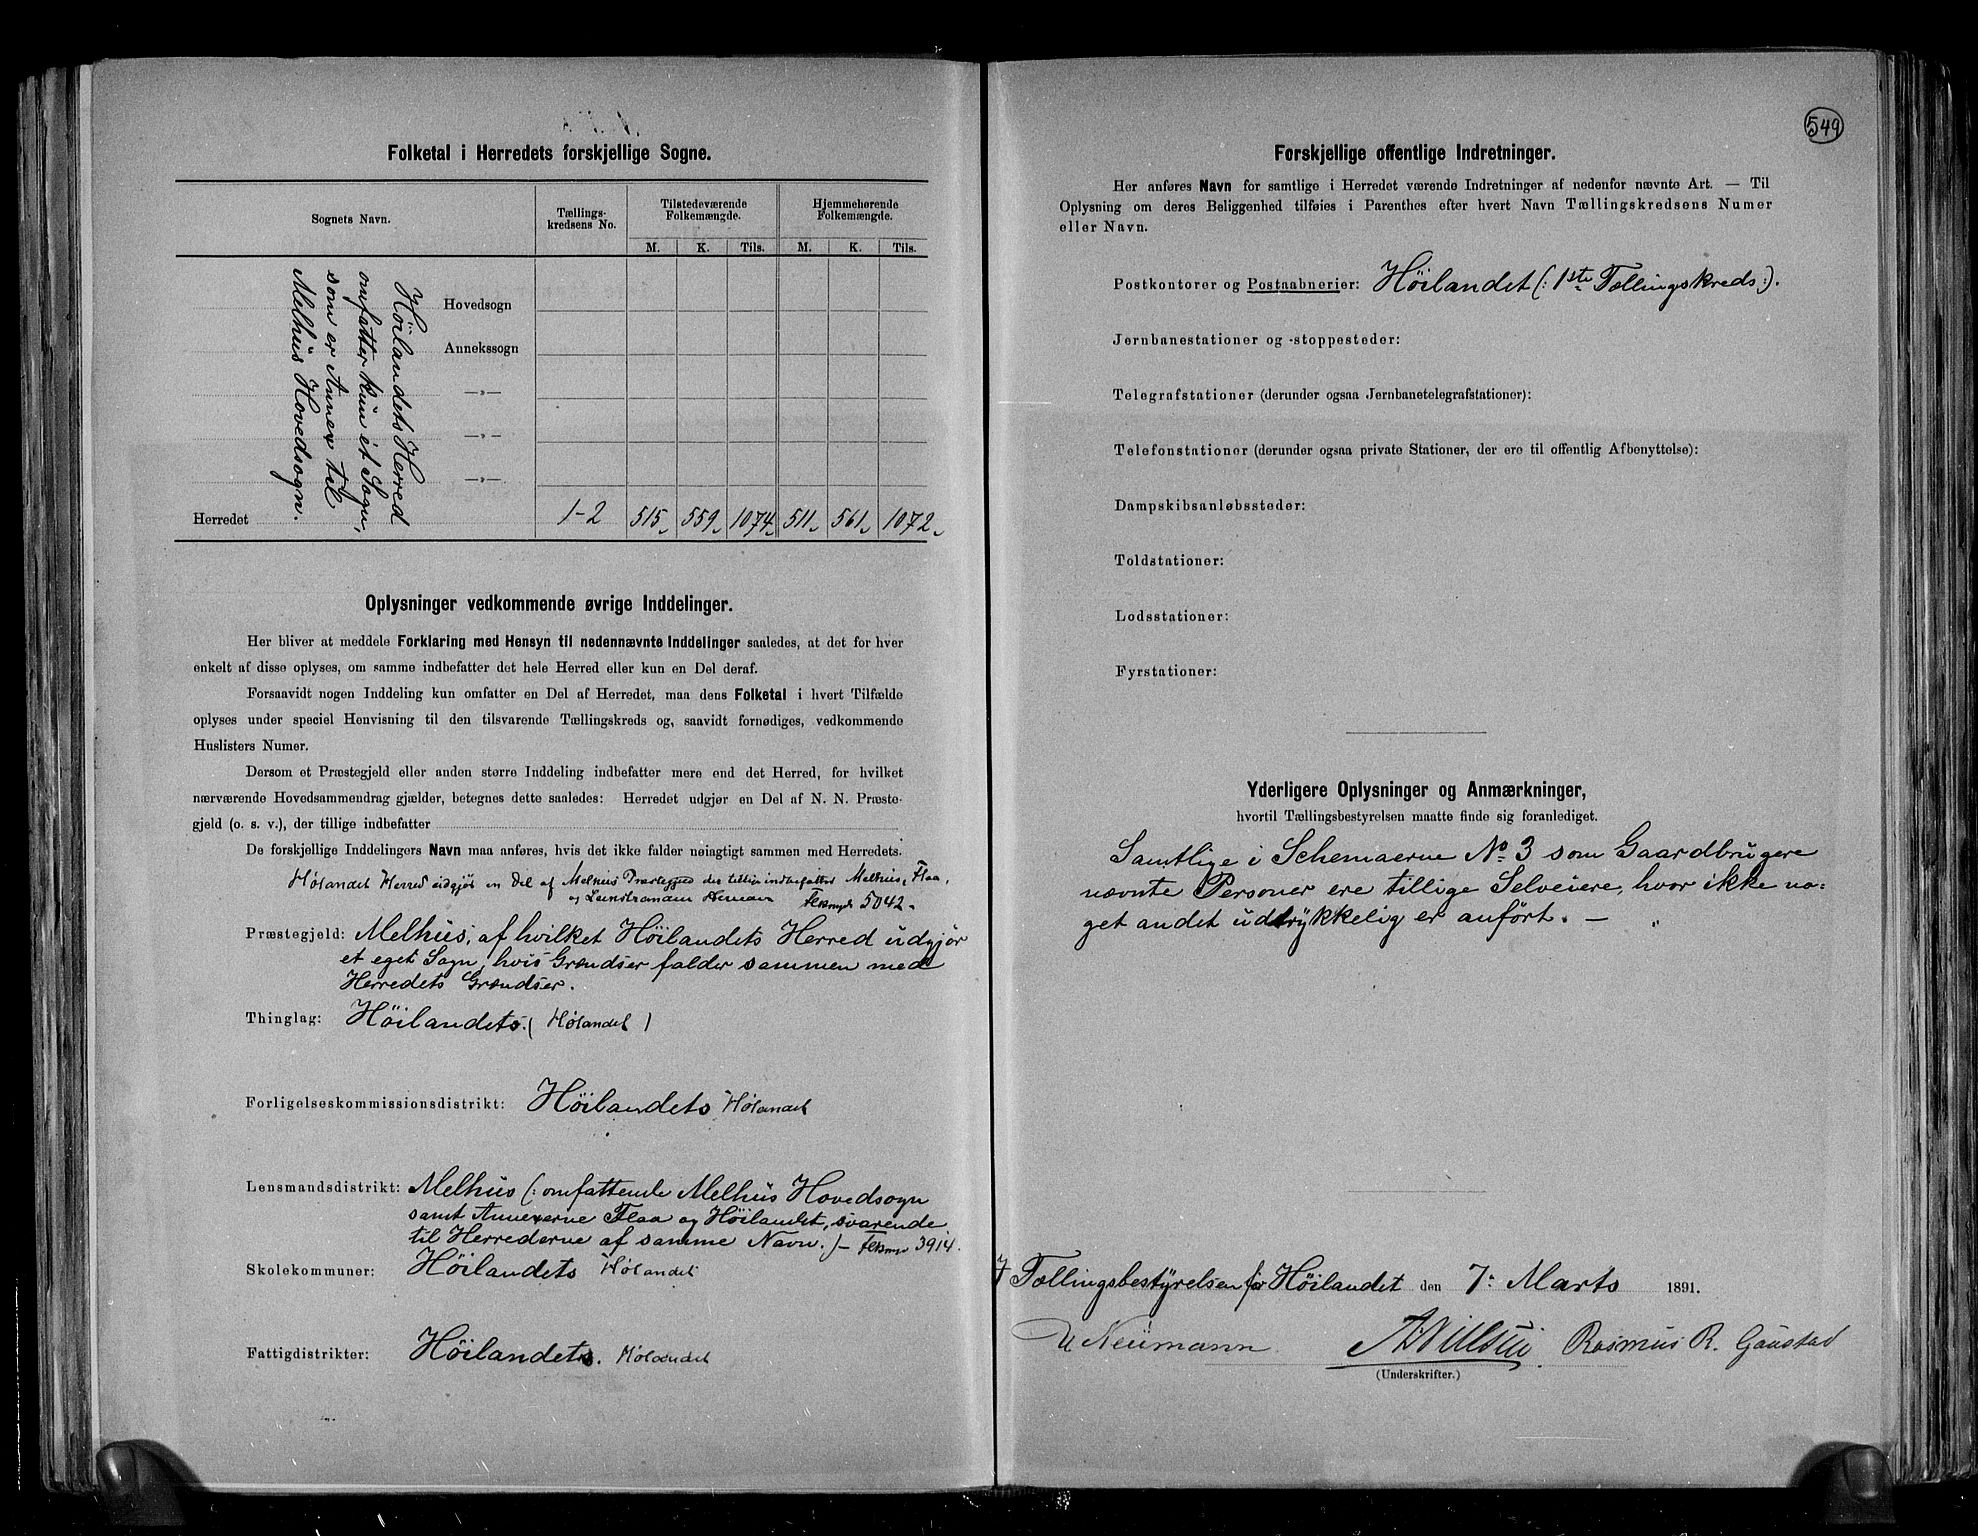 Folketal i Herredets forskjellige Sogne.
Sognets Navn.
Tællings-
kredsens No.
Tilstedeværende
Folkemængde.
Hjemmehørende
Folkemængde.
M. K. Tils. M. K. Tils.
Hovedsogn
Annekssogn
—„—
—„—
—„—
Höilandets Herred
omfatter kun et Sogn,
som er Annex til
Melhus Hovedsogn.
Herredet 1-2 515 559 1074 511 561 1072
Oplysninger vedkommende øvrige Inddelinger.
Her bliver at meddele Forklaring med Hensyn til nedennævnte Inddelinger saaledes, at det for hver
enkelt af disse oplyses, om samme indbefatter det hele Herred eller kun en Del deraf.
Forsaavidt nogen Inddeling kun omfatter en Del af Herredet, maa dens Folketal i hvert Tilfælde
oplyses under speciel Henvisning til den tilsvarende Tællingskreds og, saavidt fornødiges, vedkommende
Huslisters Numer.
Dersom et Præstegjeld eller anden større Inddeling indbefatter mere end det Herred, for hvilket
nærværende Hovedsammendrag gjælder, betegnes dette saaledes: Herredet udgjør en Del af N. N. Præste-
gjeld (o. s. v.), der tillige indbefatter
De forskjellige Inddelingers Navn maa anføres, hvis det ikke falder nøiagtigt sammen med Herredets.
Hølandet Herred udgjør en Del af Melhus Præstegjeld der tillige indbefatter Melhus, Flaa,
og Leinstranden 5042
Præstegjeld: Melhus, af hvilket Höilandets Herred udgjør
et eget Sogn, hvis Grændser falder sammen med
Herredets Grændser.
Thinglag: Höilandets. (Hølandet)
Forligelseskommissionsdistrikt: Höilandets Hølandet
Lensmandsdistrikt: Melhus (: omfattende Melhus Hovedsogn
samt Annexerne Flaa og Höilandet, svarende
til Herrederne af samme Navn.) — 3914.
Skolekommuner: Höilandets Hølandet
Fattigdistrikter: Höilandets. Hølandet
549
Forskjellige offentlige Indretninger.
Her anføres Navn for samtlige i Herredet værende Indretninger af nedenfor nævnte Art. — Til
Oplysning om deres Beliggenhed tilføies i Parenthes efter hvert Navn Tællingskredsens Numer
eller Navn.
Postkontorer og Postaabnerier: Höilandet (: 1ste Tællingskreds:).
Jernbanestationer og -stoppesteder:
Telegrafstationer (derunder ogsaa Jernbanetelegrafstationer):
Telefonstationer (derunder ogsaa private Stationer, der ere til offentlig Afbenyttelse):
Dampskibsanløbssteder:
Toldstationer:
Lodsstationer:
Fyrstationer:
Yderligere Oplysninger og Anmærkninger,
hvortil Tællingsbestyrelsen maatte finde sig foranlediget.
Samtlige i Schemaerne No 3 som Gaardbrugere
nævnte Personer ere tillige Selveiere, hvor ikke no-
get andet udtrykkelig er anført. —
I Tællingsbestyrelsen for Höilandet den 7: Marts 1891.
Neumann Rasmus R. Gaustad
(Underskrifter.)